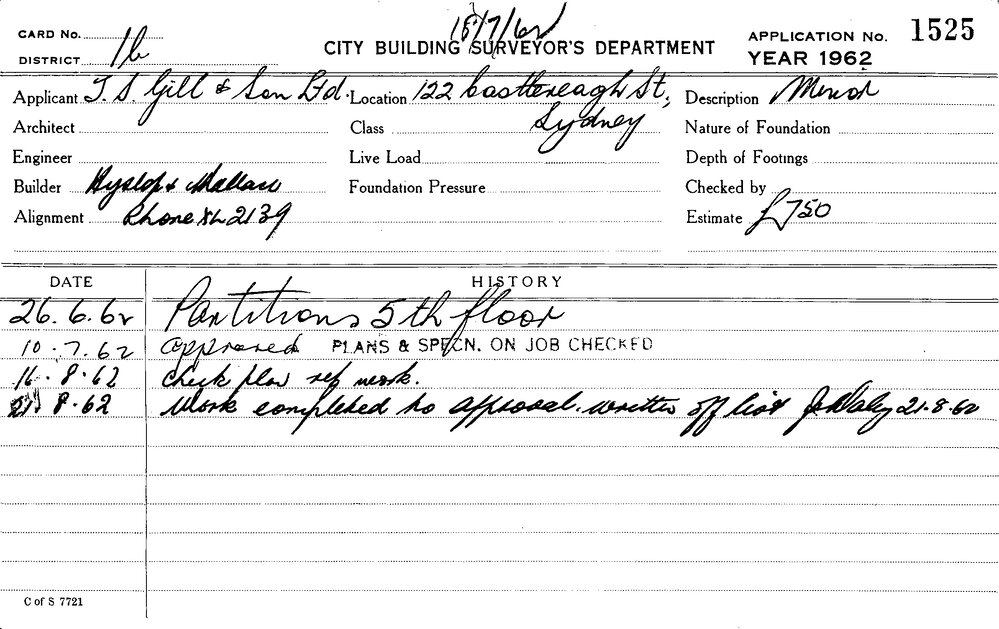 18/7/62
CARD No.
CITY BUILDING SURVEYOR'S DEPARTMENT
APPLICATION No. 1525
DISTRICT 1b
YEAR 1962
Applicant T. S. Gill & Son Ltd. Location 122 Castlereagh St, Description Minor
Sydney
Architect Class Nature of Foundation
Engineer Live Load Depth of Footings
Builder Hyslop & Wallace Foundation Pressure Checked by
Alignment Phone XL 2139 Estimate £750
DATE HISTORY
26.6.62 Partitions 5th floor
10.7.62 approved PLANS & SPECN. ON JOB CHECKED
16.8.62 Check plan ref work.
21 8.62 Work completed to approval. written off list 21-8-62
C of S 7721